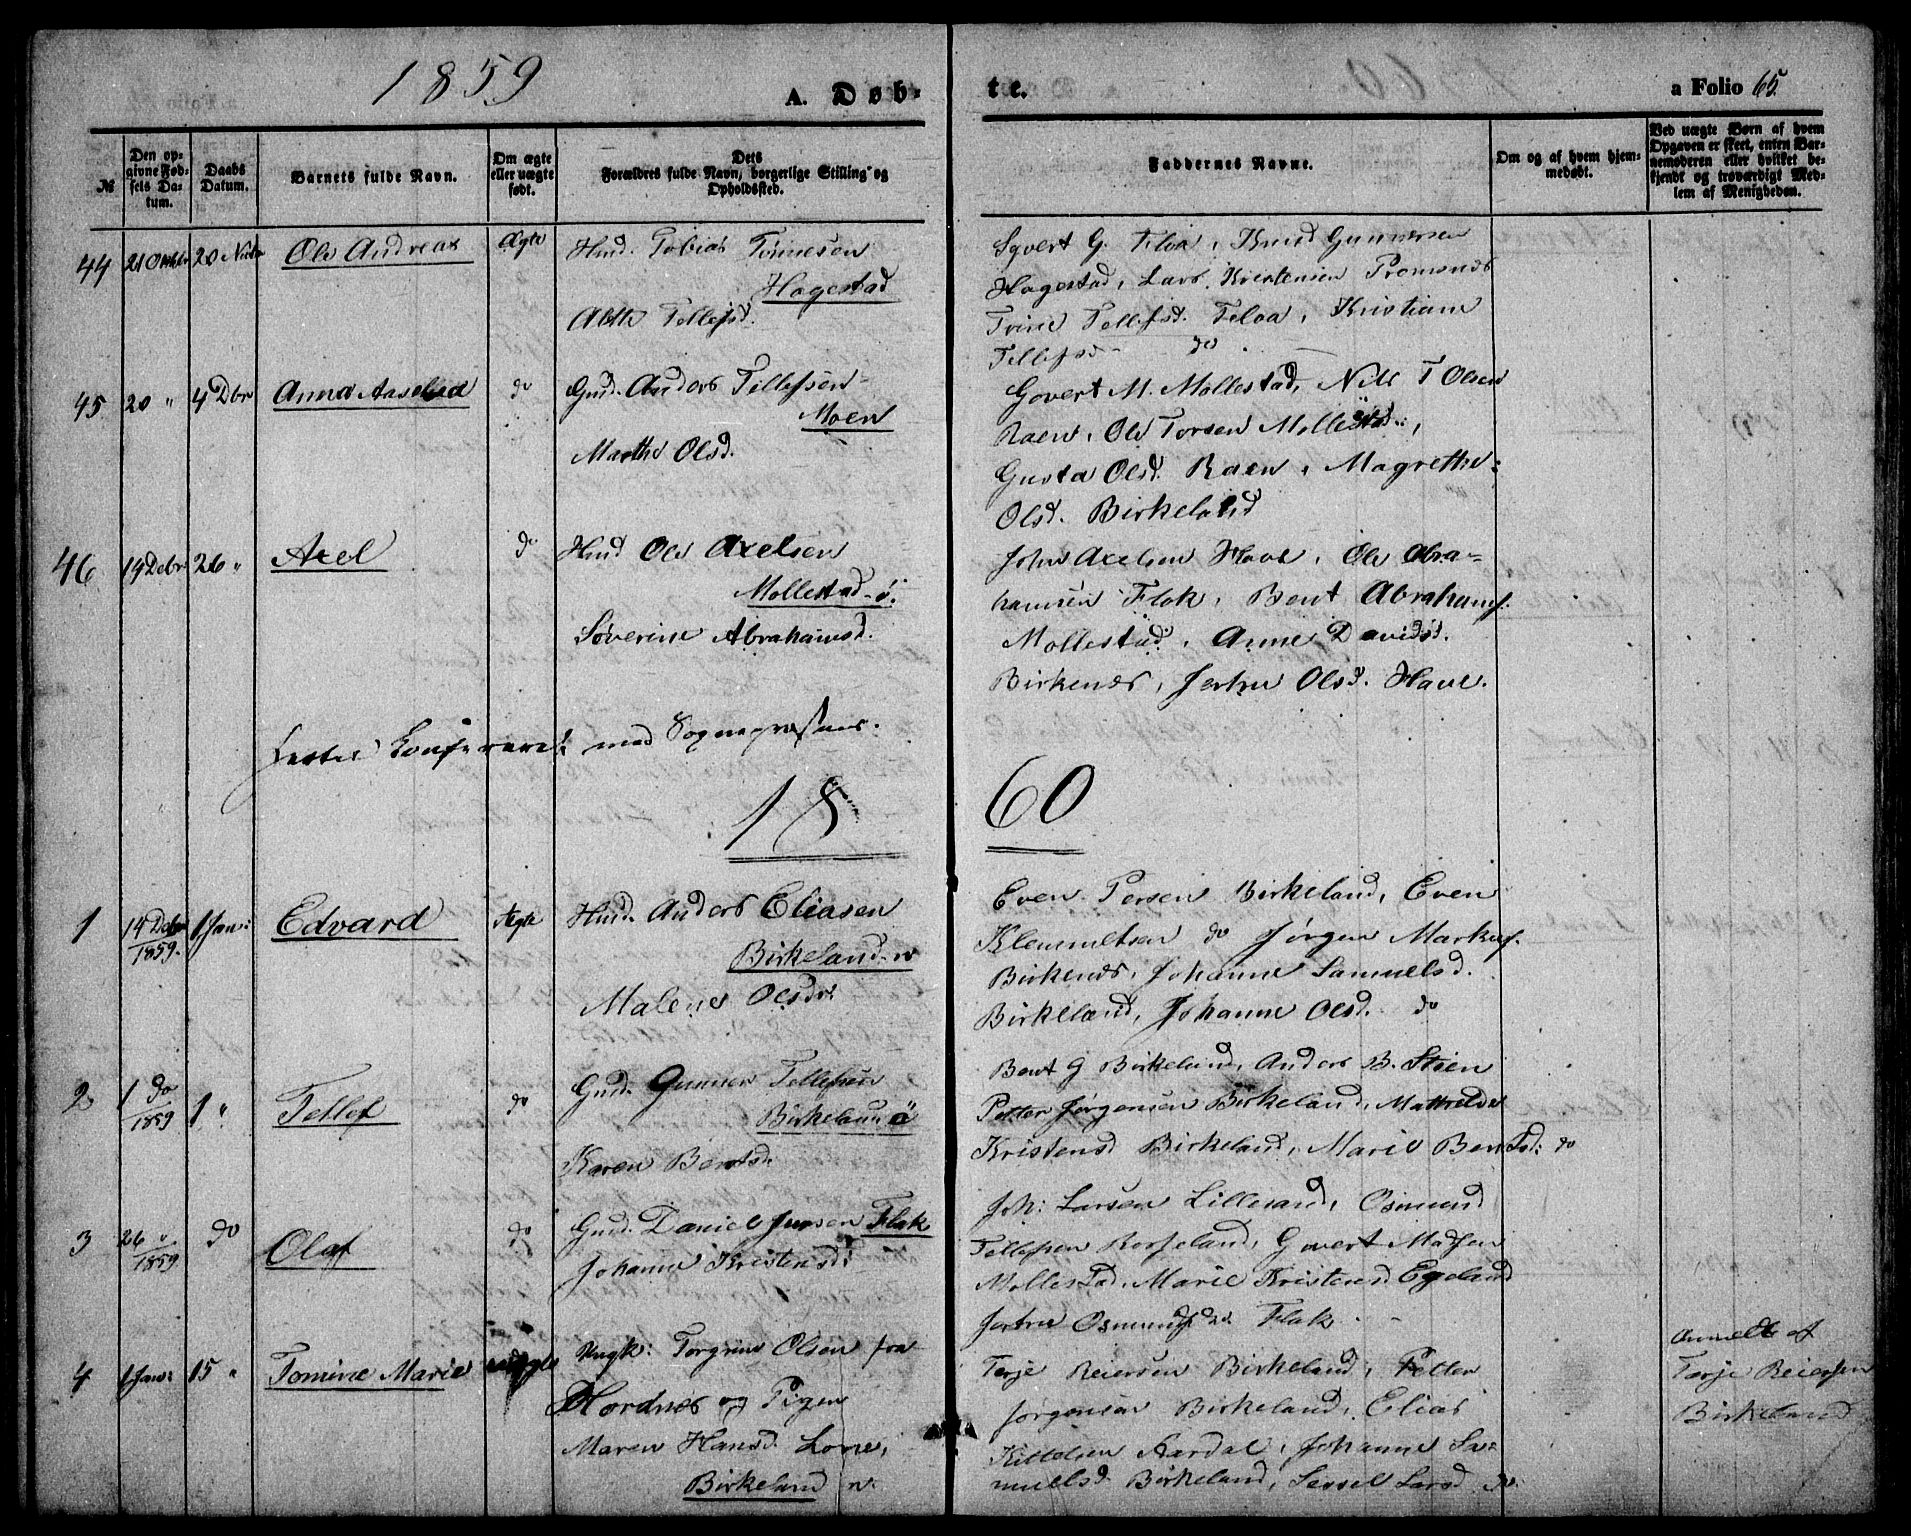 1859
A. Døb-
te.
a Folio 65.
№
Den op-
givne Fød-
sels Da-
tum.
Daabs
Datum.
Barnets fulde Navn.
Om ægte
eller uægte
født.
Dets
Forældres fulde Navn, borgerlige Stilling og
Opholdssted.
Faddernes Navne.
Om og af hvem hjem-
medøbt.
Ved uægte Børn af hvem
Opgaven er skeet, enten Bar-
nemoderen eller hvilket be-
kjendt og troværdigt Med-
lem af Menigheden.
44 21 Oktbr 20 Nvbr Ole Andreas Ægte Huud. Tobias Tønnesen
Hagestad
Tellefsd.
Syvert G. Flaa, Knud Gunnersen
Hagestad, Lars Kristensen
Trine Tellefsd. Floa, Kristiane
Tellefsd do
45 20 " 4 Dbr Anna Aasebed do Gmd. Anders Tellefsen
Moen
Marthe Olsd.
Govert M. Mollestad, Nils T Olsen
Raen, Ole Torsen Mollestad,
Gusta Olsd. Raen, Magrethe
Olsd. Birkeland
46 14 Debr 26 " Axel do Huud Ole Axelsen
Mollestad ø.
Søverine Abrahamsd.
John Axelsen Have, Ole Abra-
hamsen Flak, Bent Abrahams.
Mollestad, Anne Davidsd.
Birkenes, Jertru Olsd. Have.
med Sognepræstens.
18
60
1 14 Debr 1859. 1 Jan: Edvard Ægte Huud. Anders Eliasen
Birkeland n
Malene Olsdr.
Even Persen Birkeland, Even
Klemmetsen do Jørgen Markus.
Birkenes, Johanne Samuelsd.
Birkeland, Johanne Olsd. do
2 1 do 1859 1 " Tellef do Gmd. Gunner Tellefsen
Birkeland ø
Karen Bentsd.
Bent G Birkeland, Anders B. Stien
Petter Jørgensen Birkeland, Mathilde
Kristensd Birkeland, Marie Bentsd: do
3 26 " 1859 do Olaf do Gmd. Daniel Jensen Flak
Johanne Kristensd:
Joh: Larsen Lillesand, Osmund
Tellefsen Rosseland, Govert Madsen
Mollestad, Marie Kristensd Egeland
Jertru Osmundsdr. Flak
4 1 Jan: 15 " Tomine Marie uægte Ungk: Torgrim Olsen fra
Hordnes og Pigen
Maren Hansd. Lone,
Birkeland n.
Terje Reiersen Birkeland, Petter
Jørgensen Birkeland, Elias
Kittelsen Aardal, Johanne Sa-
muelsd Birkeland, Sessel Larsd do.
Anmeldt af
Terje Reiersen
Birkeland